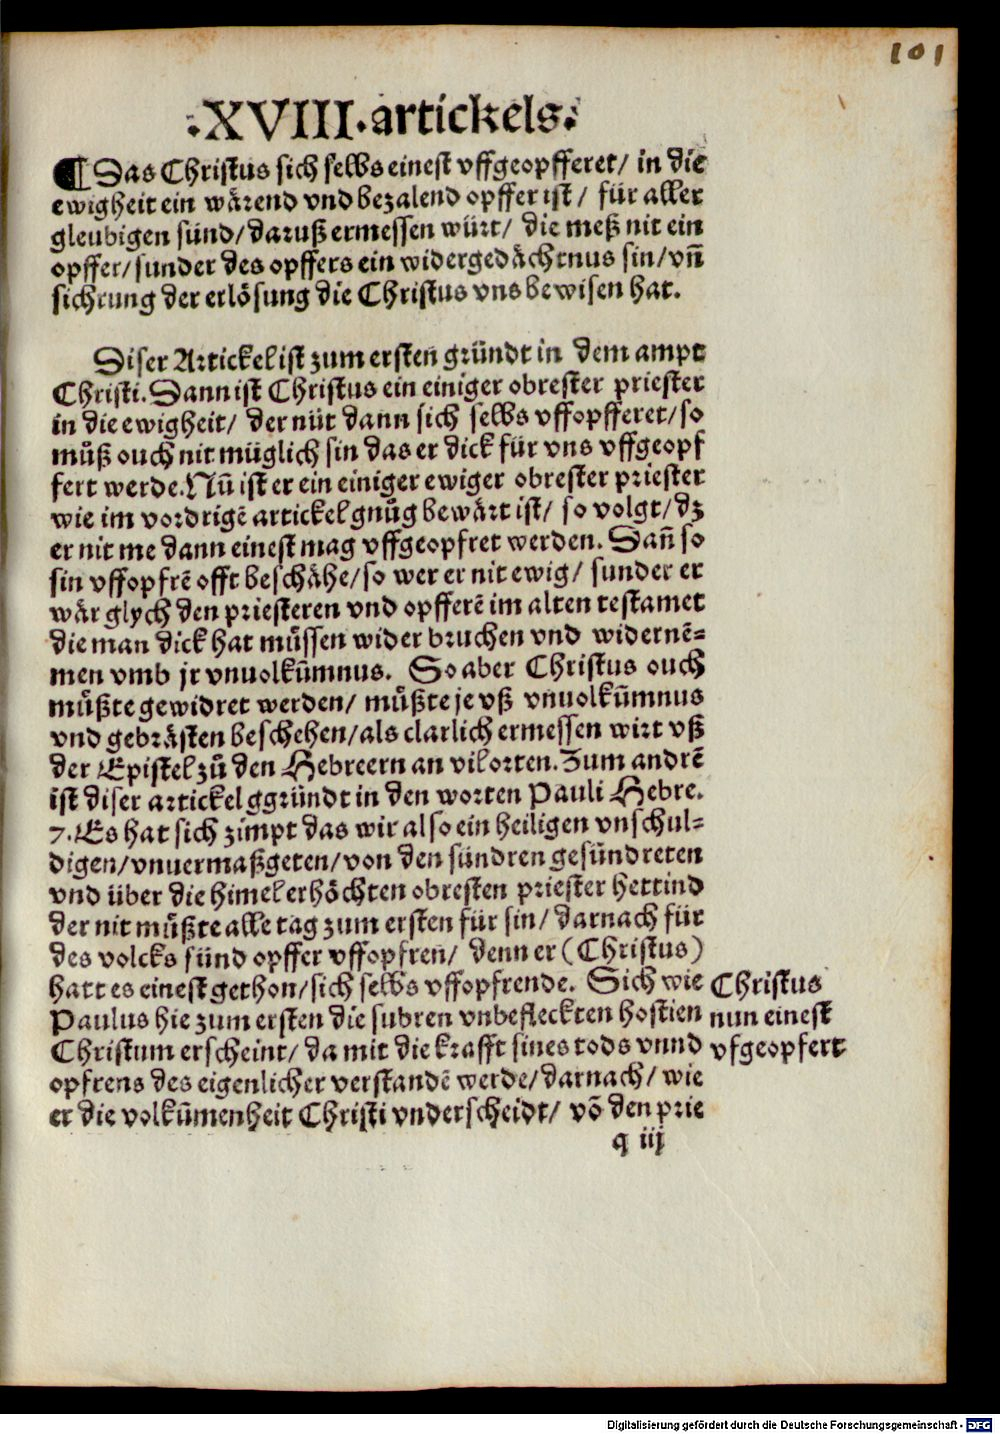 101
.XVIII.artickels.
¶ Das Christus sich selbs einest vffgeopfferet/ in die
ewigheit ein wärend vnd bezalend opffer ist/ für aller
gleubigen sünd/ daruß ermessen würt/ die meß nit ein
opffer/ sunder des opffers ein widergedächtnus sin/ vñ
sichrung der erlösung die Christus vns bewisen hat.
Diser Artickel ist zum ersten gründt in dem ampt
Christi. Dann ist Christus ein einiger obrester priester
in die ewigheit/ der nüt dann sich selbs vffopfferet/ so
muͦß ouch nit müglich sin das er dick für vns vffgeopf
fert werde. Nū ist er ein einiger ewiger obrester priester
wie im vordrigē artickel gnuͦg bewärt ist/ so volgt/ dz
er nit me dann einest mag vffgeopfret werden. Dañ so
sin vffopfrē offt beschähe/ so wer er nit ewig/ sunder er
wär glych den priesteren vnd opfferē im alten testamet
die man dick hat müssen wider bruchen vnd widernē=
men vmb jr vnuolkūmnus. So aber Christus ouch
müßte gewidret werden/ müßte je vß vnuolkūmnus
vnd gebrästen beschehen/ als clarlich ermessen wirt vß
der Epistel zuͦ den Hebreern an vil orten. Zum andrē
ist diser artickel ggründt in den worten Pauli Hebre.
7. Es hat sich zimpt das wir also ein heiligen vnschul=
digen/ vnuermaßgeten/ von den sündren gesündreten
vnd über die himel erhöchten obresten priester hettind
der nit müßte alle tag zum ersten für sin/ darnach für
des volcks sünd opffer vffopfren/ denn er (Christus)
hatt es einest gethon/ sich selbs vffopfrende. Sich wie
Paulus hie zum ersten die subren vnbefleckten hostien
Christum erscheint/ da mit die krafft sines tods vnnd
opfrens des eigenlicher verstandē werde/ darnach/ wie
er die volkūmenheit Christi vnderscheidt/ vō den prie
Christus
nun einest
vfgeopfert
q iij
Digitalisierung gefördert durch die Deutsche Forschungsgemeinschaft - DFG